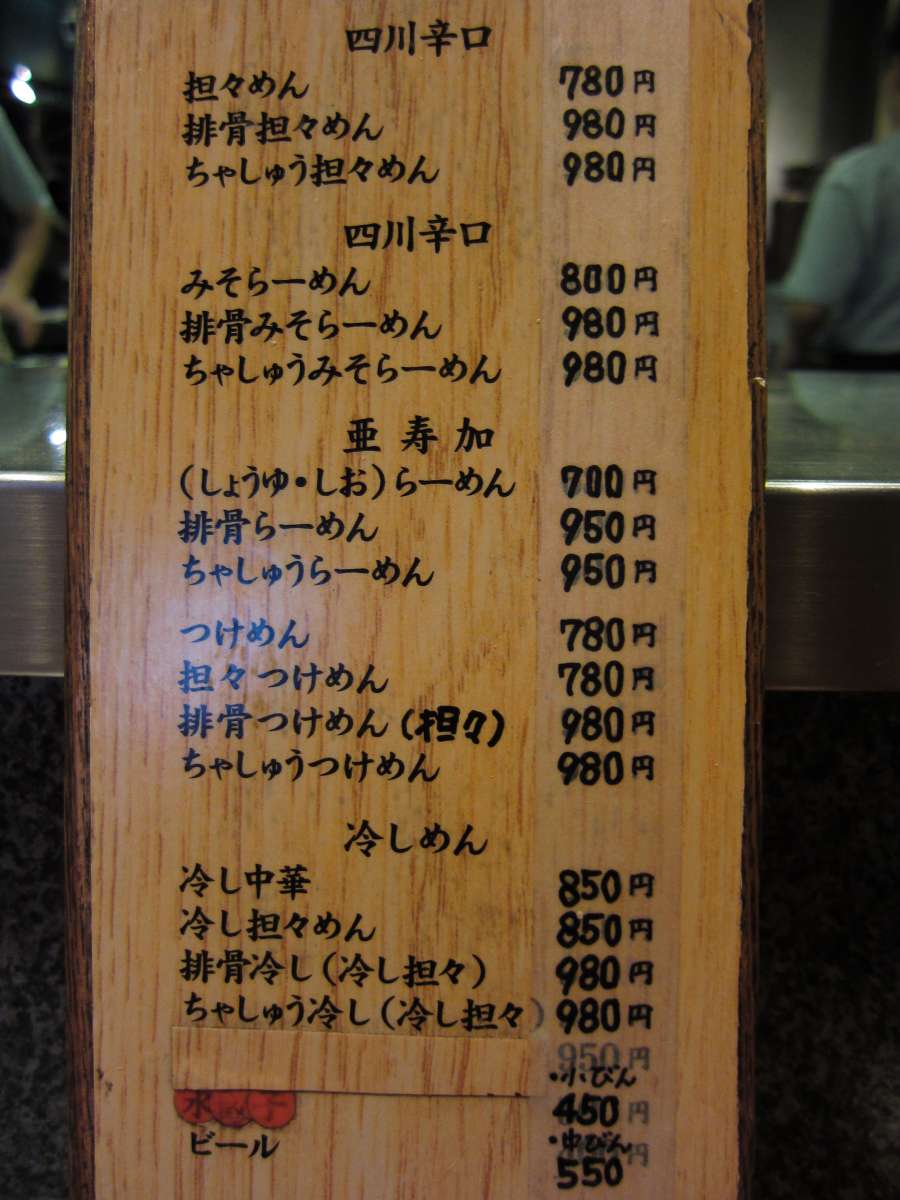 四川辛口
担々めん 780円
排骨担々めん 980円
ちゃしゅう担々めん 980円
四川辛口
みそらーめん 800円
排骨みそらーめん 980円
ちゃしゅうみそらーめん 980円
亜寿加
(しょうゆ・しお)らーめん 700円
排骨らーめん 950円
ちゃしゅうらーめん 950円
つけめん 780円
担々つけめん 780円
排骨つけめん(担々) 980円
ちゃしゅうつけめん 980円
冷しめん
冷し中華 850円
冷し担々めん 850円
排骨冷し(冷し担々) 980円
ちゃしゅう冷し(冷し担々) 980円
950円
・小びん
450円
ビール ・中びん
550